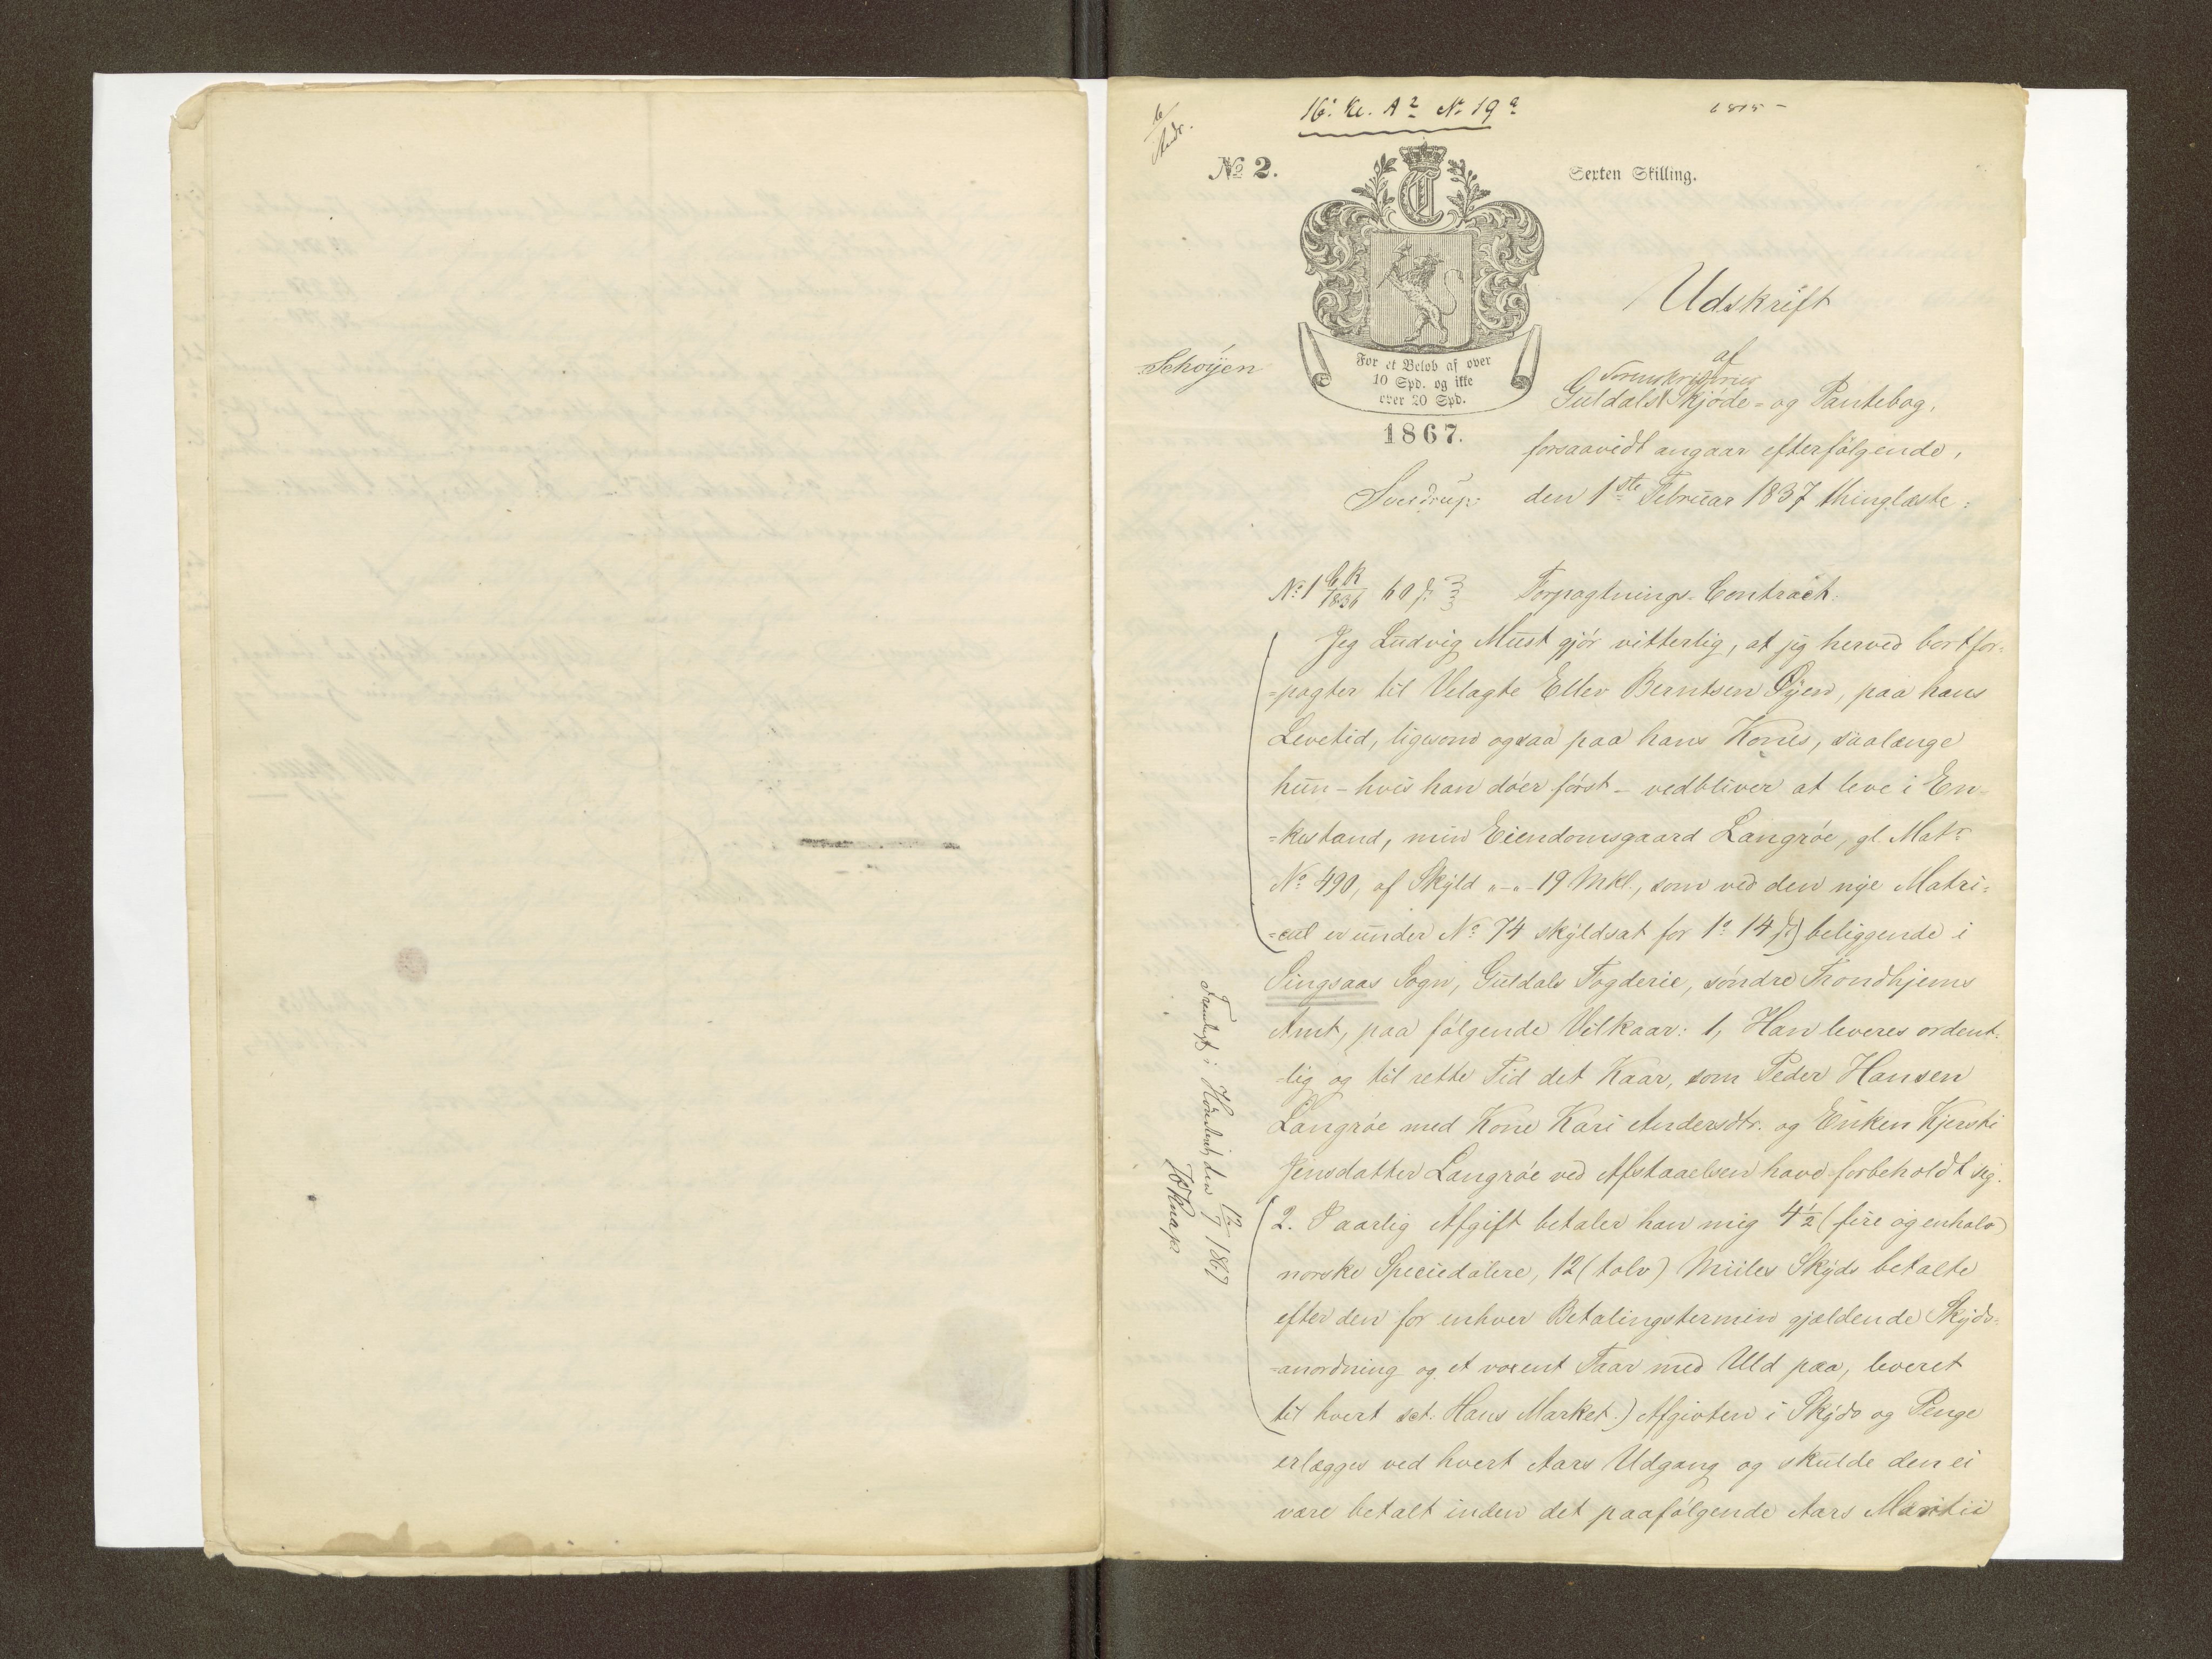 16. Kl. A 2 No 19 a
6
Andr.
No 2.
Sexten Skilling.
Udskrift
Schøyen
For et Beløb af over
10 Spd. og ikke
over 20 Spd.
1867.
af
Sorenskriverens
Guldals Skjöde- og Pantebog,
forsaavidt angaar efterfölgende,
Sverdrup
den 1ste Februar 1837 thinglæste:
No 1 1836 60 s. Forpagtnings-Contract.
Jeg Ludvig Must gjör vitterlig, at jeg herved bortfor-
-pagter til Velagte Ellev Berntsen Öyen, paa hans
Levetid, ligesom ogsaa paa hans Kones, saalænge
hun - hvis han döer först - vedbliver at leve i En-
-kestand, min Eiendomsgaard Langröe, gl. Matr
No 490, af Skyld "-"-19 Mkl., som ved den nye Matri-
-cul er under No 74 skyldsat for 1 14 s.) beliggende i
Singsaas Sogn, Guldals Fogderie, söndre Trondhjems
Amt, paa fölgende Vilkaar: 1, Han leveres ordent-
-lig og til rette Tid det Kaar, som Peder Hansen
Langröe med Kone Kari Andersdtr. og Enken Kjersti
Jensdatter Langröe ved Afstaaelsen have forbeholdt sig.
2. I aarlig Afgift betaler han mig 4½ (fire og enhalv)
norske Speciedalere, 12 (tolv) Miiles Skyds betalte
efter den for enhver Betalingstermin gjældende Skyds-
-anordning og et voxent Faar med Uld paa, leveret
til hvert sct. Hans Market.) Afgivten i Skyds og Penge
erlægges ved hvert Aars Udgang og skulde den ei
være betalt inden det paafölgende Aars Martii
Fremlagt i den 12/7 1867
Knap